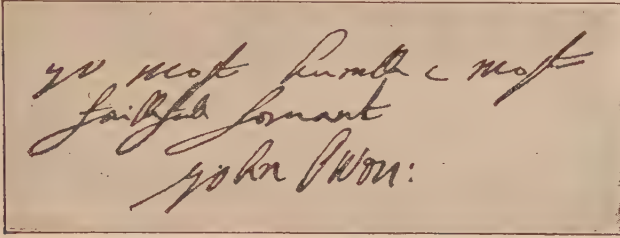 yr most humble & most
faithfull servant
John Owen: